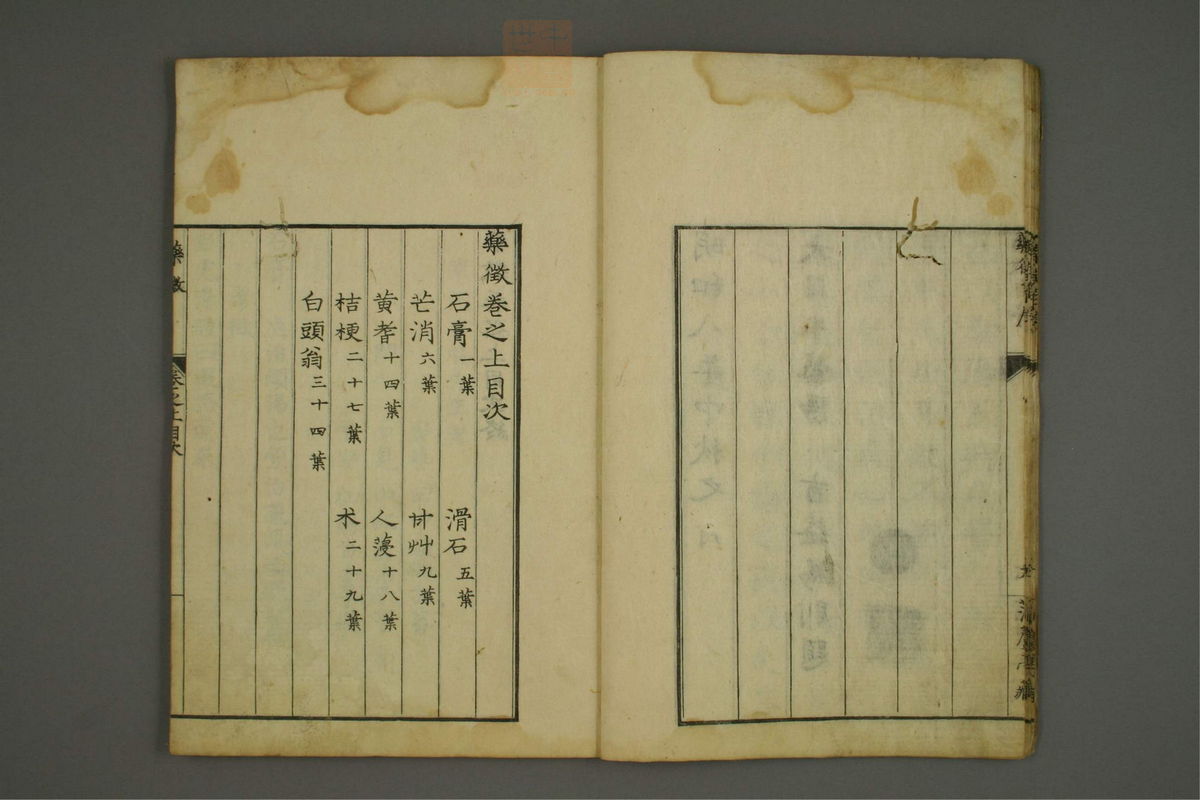 藥徵卷之上目次
石膏一葉 滑石五葉
芒消六葉 甘艸九葉
黄耆十四葉 人薓十八葉
桔梗二十七葉 朮二十九葉
白頭翁三十四葉
藥徵 卷之上目次